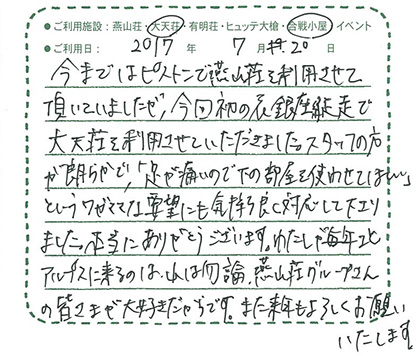 ●ご利用施設:燕山荘・大天荘・有明荘・ヒュッテ大槍・合戦小屋・イベント
●ご利用日: 2017年 7月 20日
今まではピストンで燕山荘を利用させて
頂いていましたが、今回初の表銀座縦走で
大天荘を利用させていただきました。スタッフの方
が朗らかで、「足が痛いので下の部屋を使わせてほしい」
というワガママな要望にも気持ち良く対応して下さり
ました。本当にありがとうございます。わたしが毎年北
アルプスに来るのは、山は勿論、燕山荘グループさん
の皆さまが大好きだからです。また来年もよろしくお願い
いたします